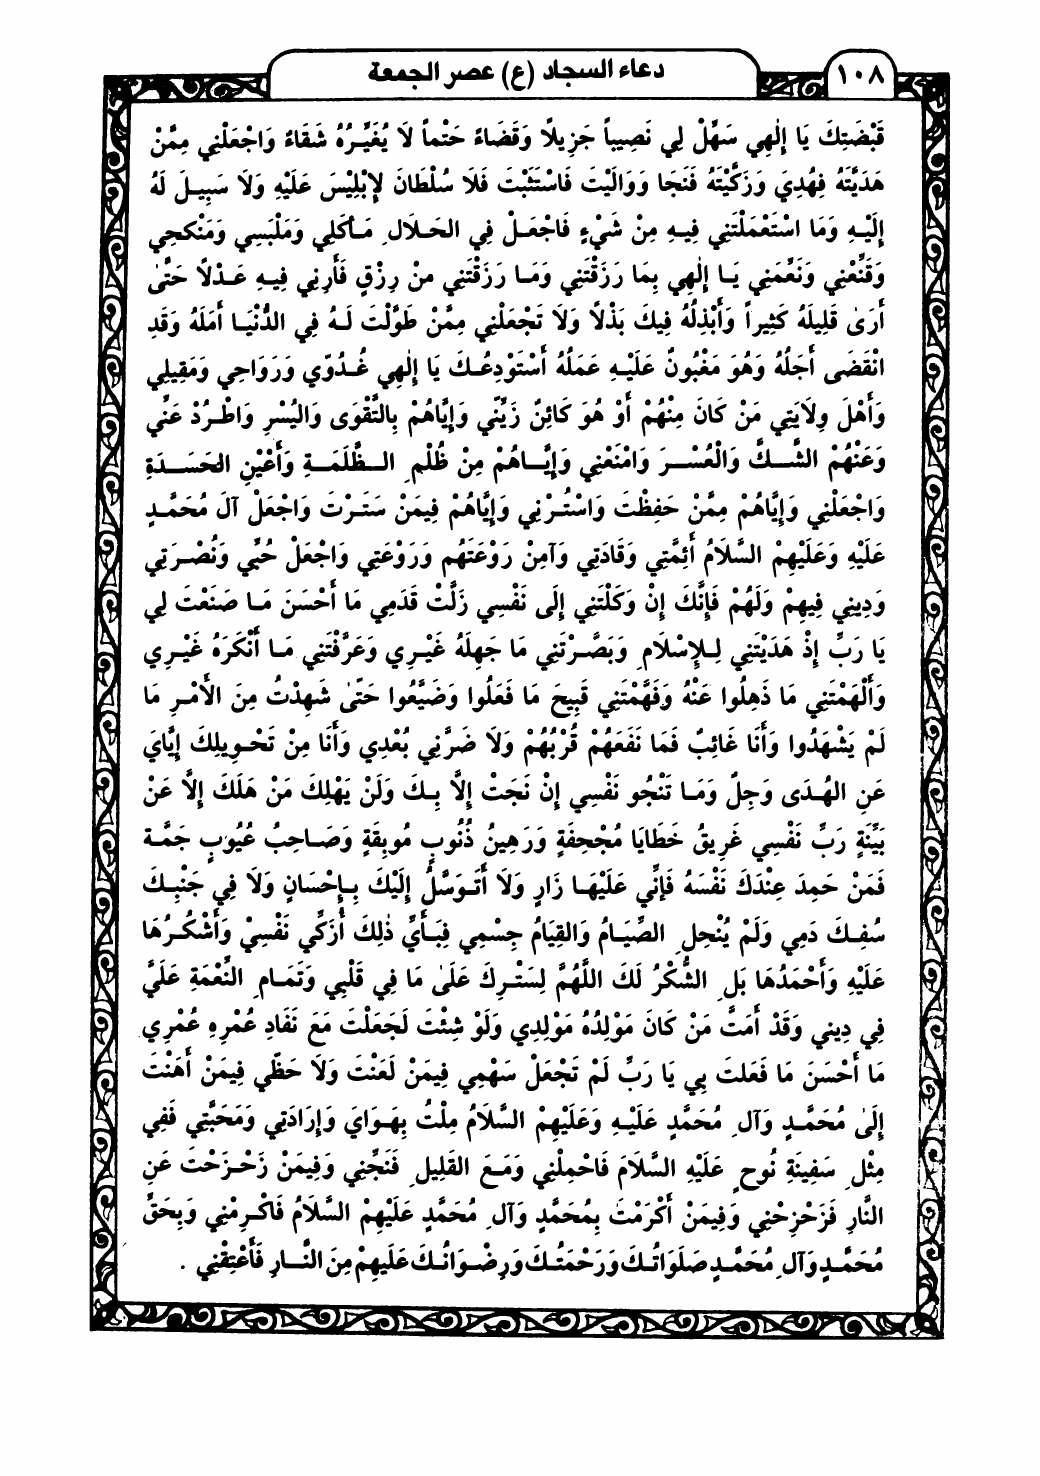 ١٠٨
دعاء السجاد (ع) عصر الجمعة
قَبْضَتِكَ يَا إِلٰهِي سَهِّلْ لِي نَصِيباً جَزِيلًا وَقَضَاءً حَتْماً لَا يُغَيِّرُهُ شَقَاءٌ وَاجْعَلْنِي مِمَّنْ
هَدَيْتَهُ فَهُدِيَ وَزَكَّيْتَهُ فَنَجَا وَوَالَيْتَ فَاسْتَثْبَتَ فَلَا سُلْطَانَ لِإِبْلِيْسَ عَلَيْهِ وَلَا سَبِيلَ لَهُ
إِلَيْهِ وَمَا اسْتَعْمَلْتَنِي فِيهِ مِنْ شَيْءٍ فَاجْعَلْ فِي الحَلَالِ مَأْكَلِي وَمَلْبَسِي وَمَنْكَحِي
وَقَنِّعْنِي وَنَعِّمْنِي يَا إِلٰهِي بِمَا رَزَقْتَنِي وَمَا رَزَقْتَنِي مِنْ رِزْقٍ فَأَرِنِي فِيهِ عَدْلًا حَتَّىٰ
أَرَىٰ قَلِيلَهُ كَثِيراً وَأَبْذِلُهُ فِيكَ بَذْلًا وَلَا تَجْعَلْنِي مِمَّنْ طَوَّلْتَ لَهُ فِي الدُّنْيَا أَمَلَهُ وَقَدِ
انْقَضَى أَجَلُهُ وَهُوَ مَغْبُونٌ عَلَيْهِ عَمَلُهُ أَسْتَوْدِعُكَ يَا إِلٰهِي غُدُوِّي وَرَوَاحِي وَمَقِيلِي
وَأَهْلَ وِلَايَتِي مَنْ كَانَ مِنْهُمْ أَوْ هُوَ كَائِنٌ زَيِّنِّي وَإِيَّاهُمْ بِالتَّقْوَى وَاليُسْرِ وَاطْرُدْ عَنِّي
وَعَنْهُمْ الشَّكَّ وَالْعُسْرَ وَامْنَعْنِي وَإِيَّاهُمْ مِنْ ظُلْمِ الظَّلَمَةِ وَأَعْيُنِ الحَسَدَةِ
وَاجْعَلْنِي وَإِيَّاهُمْ مِمَّنْ حَفِظْتَ وَاسْتُرْنِي وَإِيَّاهُمْ فِيمَنْ سَتَرْتَ وَاجْعَلْ آلَ مُحَمَّدٍ
عَلَيْهِ وَعَلَيْهِمْ السَّلَامُ أَئِمَّتِي وَقَادَتِي وَآمِنْ رَوْعَتَهُم وَرَوْعَتِي وَاجْعَلْ حُبِّي وَنُصْرَتِي
وَدِينِي فِيهِمْ وَلَهُمْ فَإِنَّكَ إِنْ وَكَلْتَنِي إِلَى نَفْسِي زَلَّتْ قَدَمِي مَا أَحْسَنَ مَا صَنَعْتَ لِي
يَا رَبِّ إِذْ هَدَيْتَنِي لِلإِسْلَامِ وَبَصَّرْتَنِي مَا جَهِلَهُ غَيْرِي وَعَرَّفْتَنِي مَا أَنْكَرَهُ غَيْرِي
وَأَلْهَمْتَنِي مَا ذَهِلُوا عَنْهُ وَفَهَّمْتَنِي قَبِيحَ مَا فَعَلُوا وَضَيَّعُوا حَتّىٰ شَهِدْتُ مِنَ الأَمْرِ مَا
لَمْ يَشْهَدُوا وَأَنَا غَائِبٌ فَمَا نَفَعَهُمْ قُرْبُهُمْ وَلَا ضَرَّنِي بُعْدِي وَأَنَا مِنْ تَحْوِيلِكَ إِيَّايَ
عَنِ الهُدَى وَجِلٌ وَمَا تَنْجُو نَفْسِي إِنْ نَجَتْ إِلَّا بِكَ وَلَنْ يَهْلِكَ مَنْ هَلَكَ إِلَّا عَنْ
بَيِّنَةٍ رَبِّ نَفْسِي غَرِيقُ خَطَايَا مُجْحِفَةٍ وَرَهِينُ ذُنُوبٍ مُوبِقَةٍ وَصَاحِبُ عُيُوبٍ جَمَّة
فَمَنْ حَمِدَ عِنْدَكَ نَفْسَهُ فَإِنِّي عَلَيْهَا زَارٍ وَلَا أَتَوَسَّلُ إِلَيْكَ بِإِحْسَانٍ وَلَا فِي جَنْبِكَ
سُفِكَ دَمِي وَلَمْ يُنْحِلِ الصِّيَامُ وَالقِيَامُ جِسْمِي فَبِأَيِّ ذٰلِكَ أُزَكِّي نَفْسِيْ وَأَشْكُرُهَا
عَلَيْهِ وَأَحْمَدُهَا بَلِ الشُّكْرُ لَكَ اللَّهُمَّ لِسَتْرِكَ عَلَىٰ مَا فِي قَلْبِي وَتَمَامِ النِّعْمَةِ عَلَيَّ
فِي دِيني وَقَدْ أَمَتَّ مَنْ كَانَ مَوْلِدُهُ مَوْلِدِي وَلَوْ شِئْتَ لَجَعَلْتَ مَعَ نَفَادِ عُمْرِهِ عُمْرِي
مَا أَحْسَنَ مَا فَعَلتَ بِي يَا رَبِّ لَمْ تَجْعَلْ سَهْمِي فِيمَنْ لَعَنْتَ وَلَا حَظِّي فِيمَنْ أَهَنْتَ
إِلَىٰ مُحَمَّدٍ وَآلِ مُحَمَّدٍ عَلَيْهِ وَعَلَيْهِمْ السَّلَامُ مِلْتُ بِهَوَايَ وَإِرَادَتِي وَمَحَبَّتِي فَفِي
مِثْلِ سَفِينَةِ نُوحٍ عَلَيْهِ السَّلَامَ فَاحْمِلْنِي وَمَعَ القَلِيلِ فَنَجِّنِي وَفِيمَنْ زَحْزَحْتَ عَنِ
النَّارِ فَزَحْزِحْنِي وَفِيمَنْ أَكْرَمْتَ بِمُحَمَّدٍ وَآلِ مُحَمَّدٍ عَلَيْهِمْ السَّلَامُ فَاكْرِمْنِي وَبِحَقِّ
مُحَمَّدٍ وَآلِ مُحَمَّدٍ صَلَوَاتُكَ وَرَحْمَتُكَ وَرِضْوَانُكَ عَلَيهِمْ مِنَ النَّارِ فَأَعْتِقْنِي .